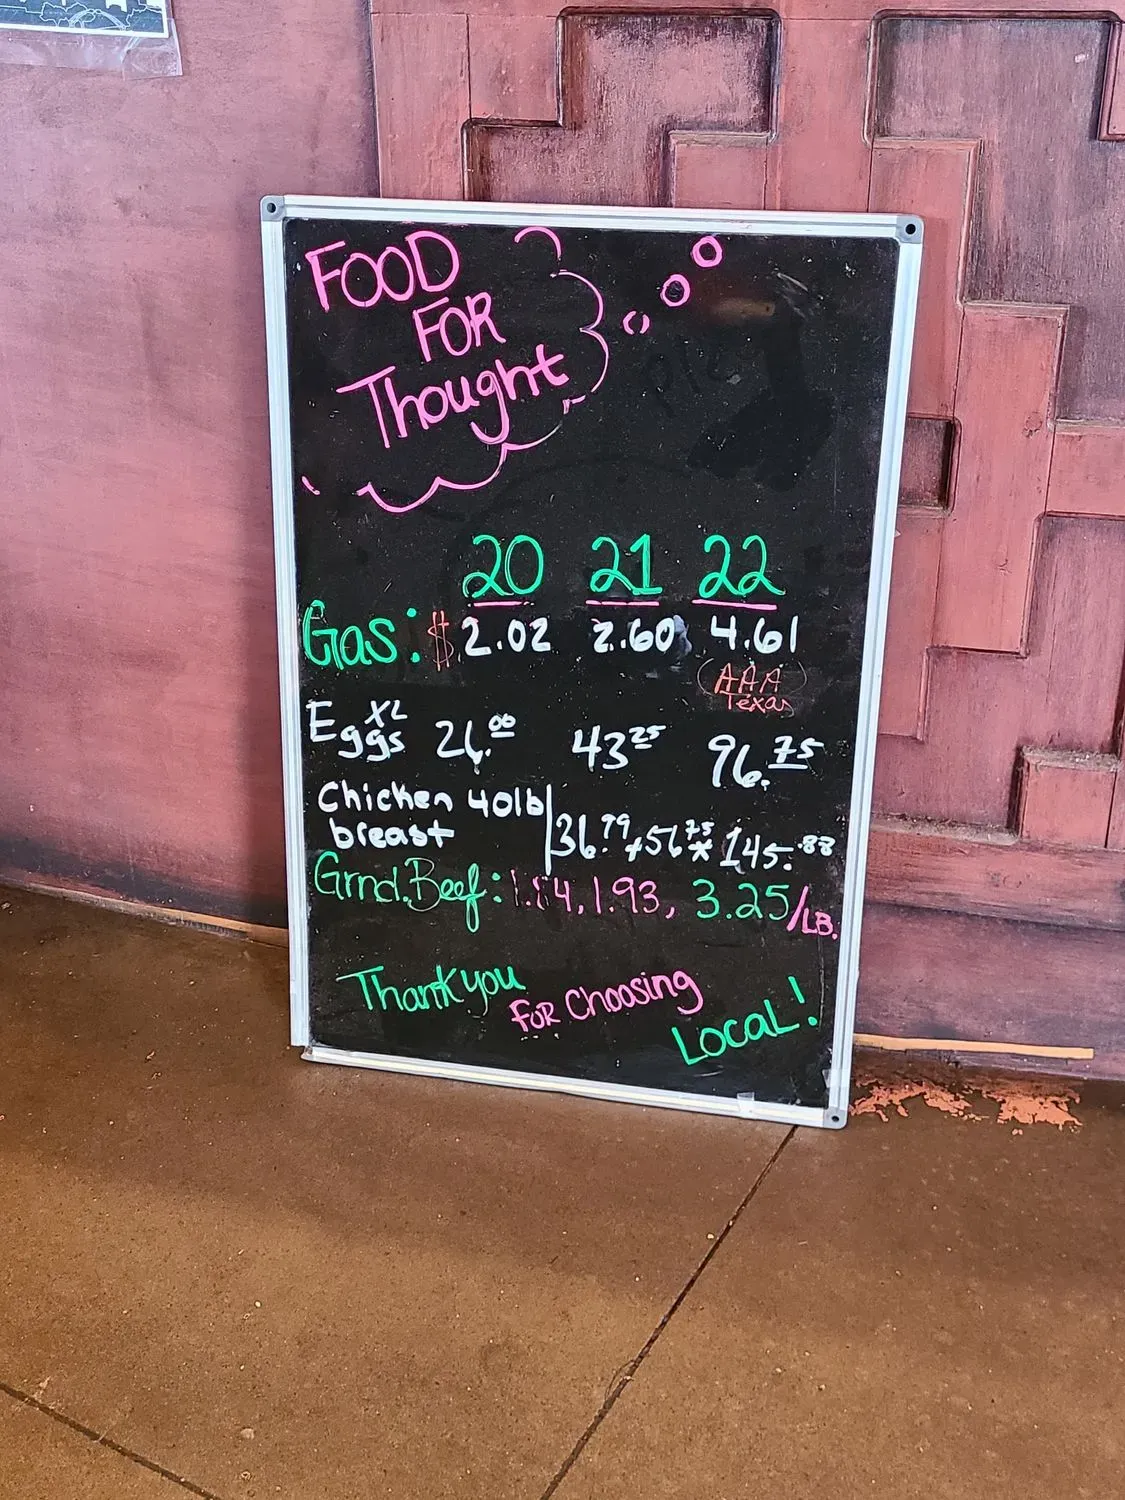 FOOD
FOR
Thought
20 21 22
Gas: $2.02 2.60 4.61
(AAA
Texas)
XL
Eggs 26.00 43 25 96.75
Chicken 40lb
breast 36.79 56 75 145.88
Grnd. Beef: 1.84, 1.93, 3.25/LB.
Thank you
FOR Choosing
LOCAL!